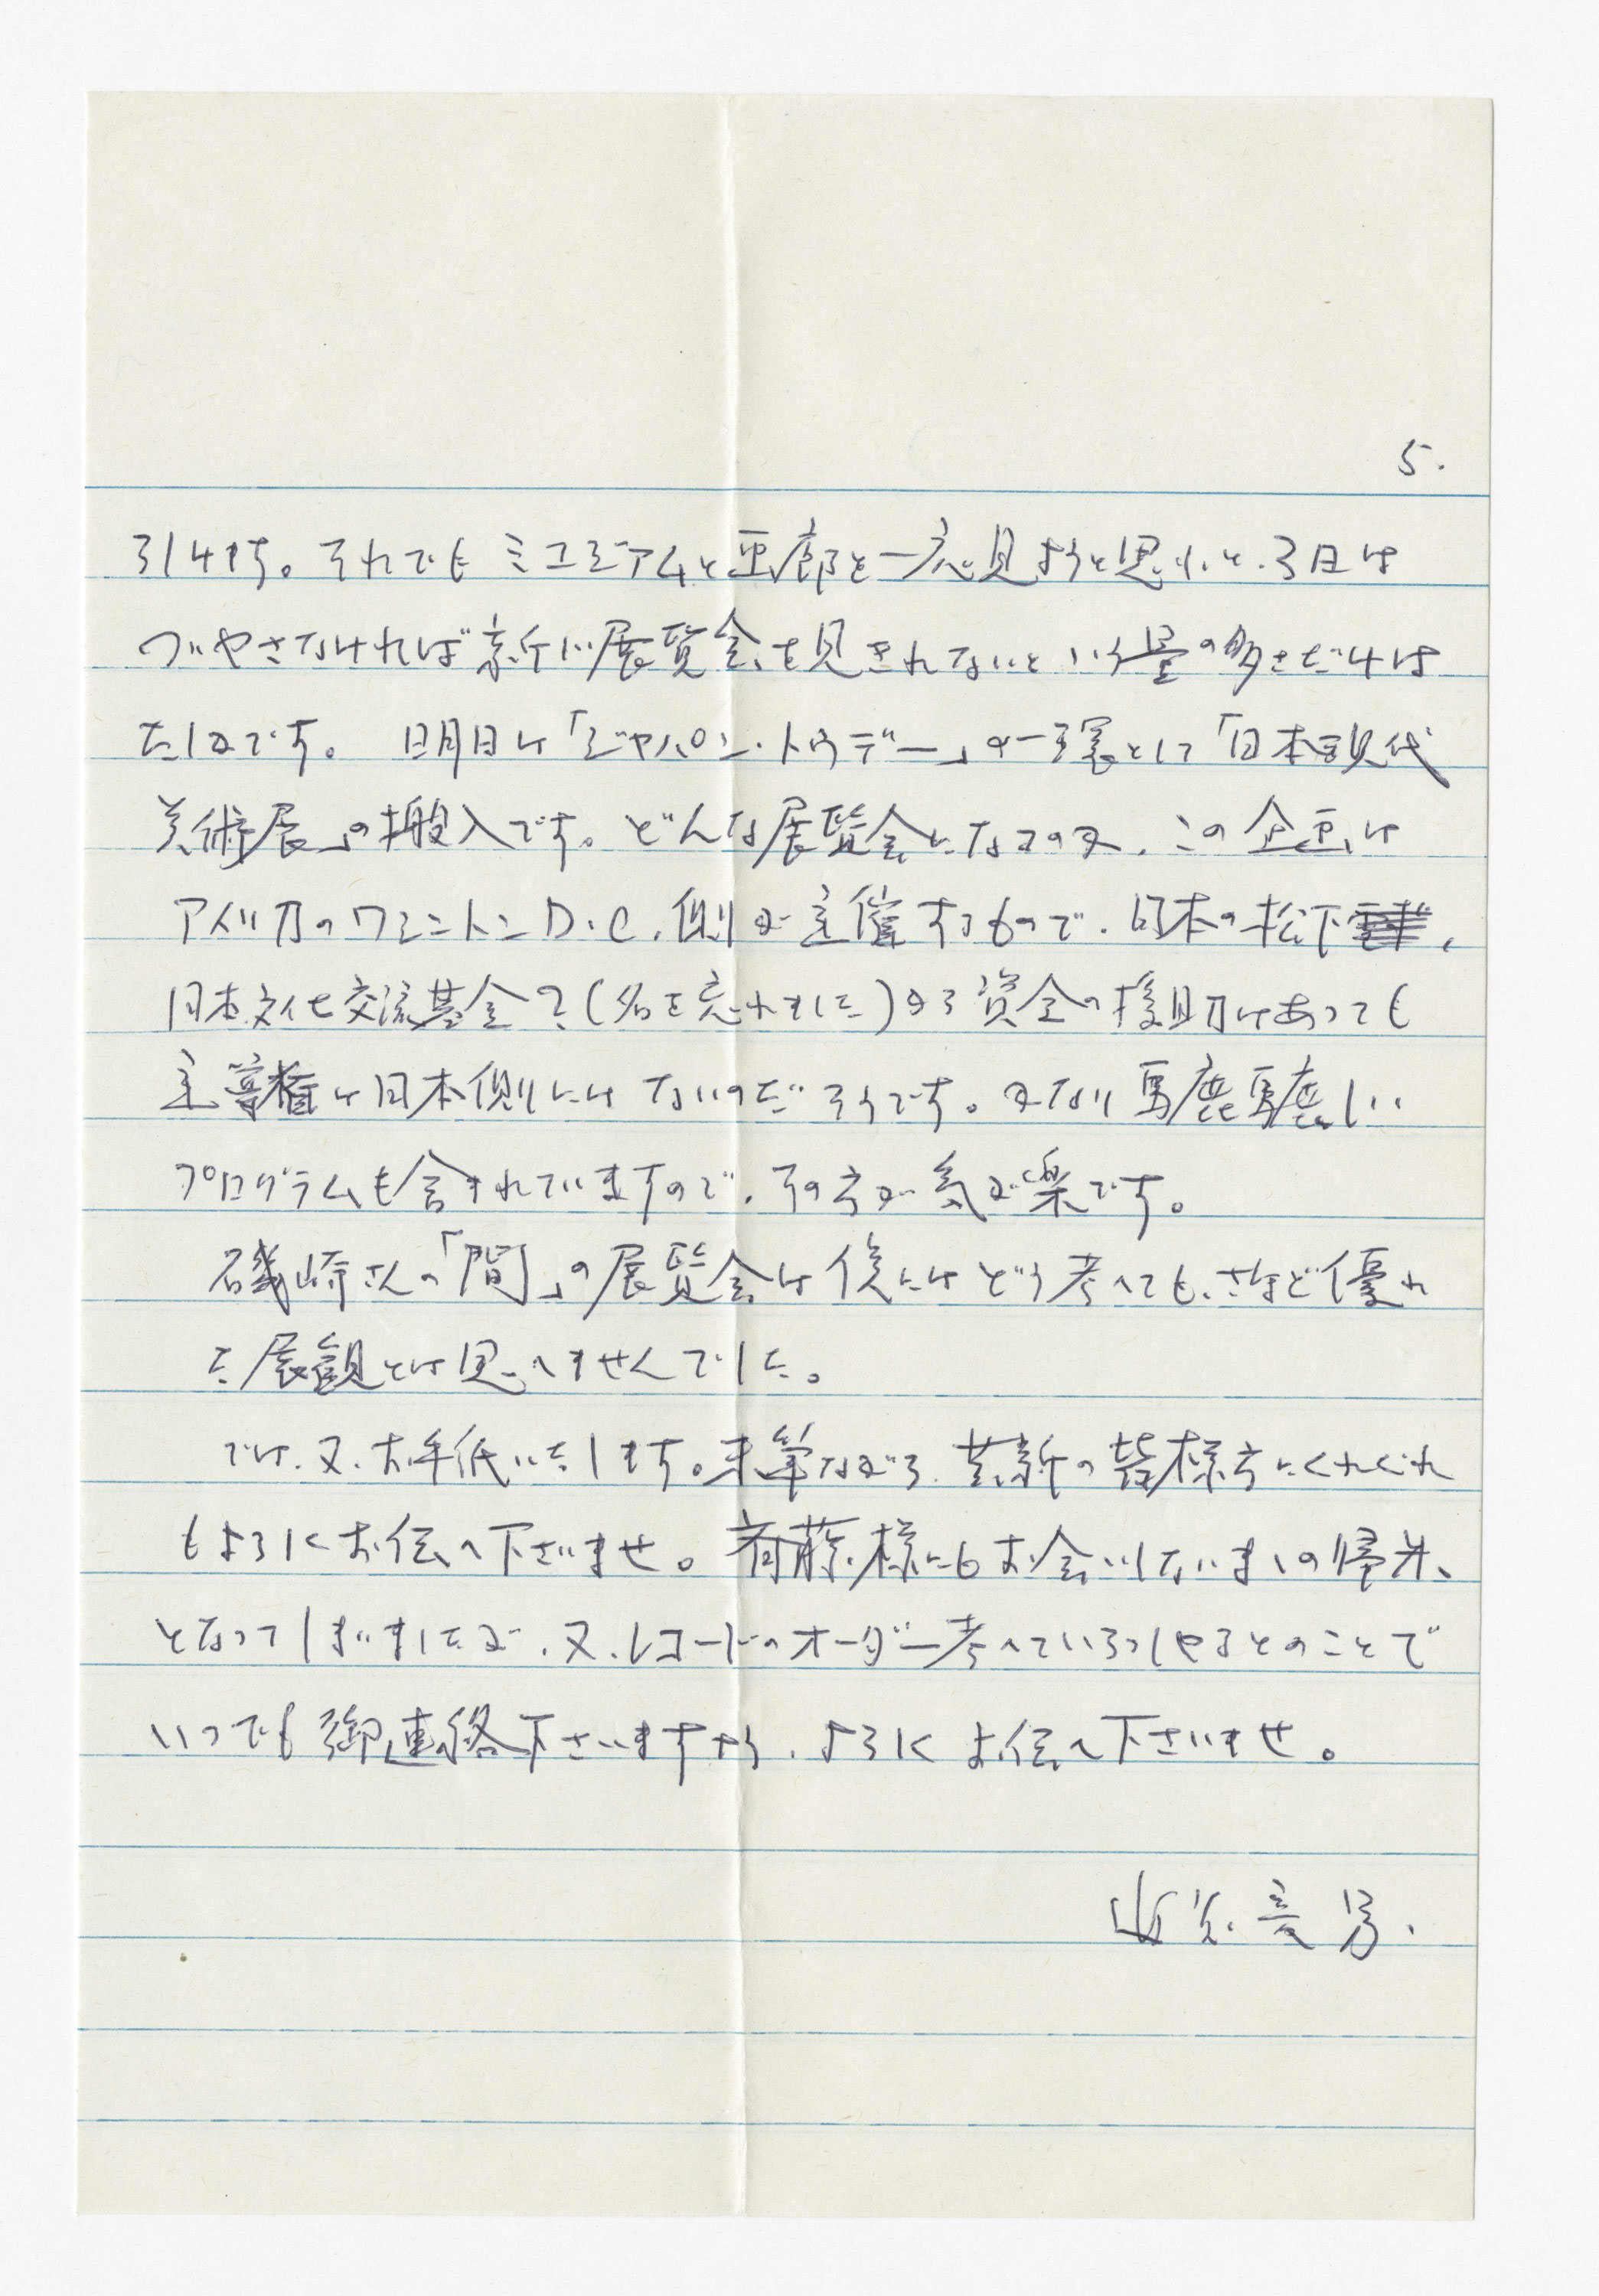 5.
ろしくます。それでもミュジアムと画廊を一応見ようと思いと、3日は
つぶやさなければ新しい展覧会を見きれないという量の多さだけは
たしかです。 明日は「ジャパン・トゥデー」の一環として「日本現代
美術展」の搬入です。どんな展覧会になるのか、この企画は
アメリカのワシントンD.C.側が主催するもので、日本の松下、
日本文化交流基金?(名を忘れました)から資金の援助はあっても
主導権は日本側にはないのだそうです。かなり馬鹿馬鹿しい
プログラムも含まれていますので、その方が気が楽です。
磯崎さんの「間」の展覧会は僕にはどう考へても、さほど優れ
た展観とは思へませんでした。
では、又、お手紙いたします。末筆ながら、芸新の皆様方にくれぐれ
もよろしくお伝へ下さいませ。斉藤様にもお会いしないまゝの帰米、
となってしまいましたが、又、レコードのオーダー考へていらっしゃるとのことで
いつでも御連絡下さいますよう、よろしくお伝へ下さいませ。